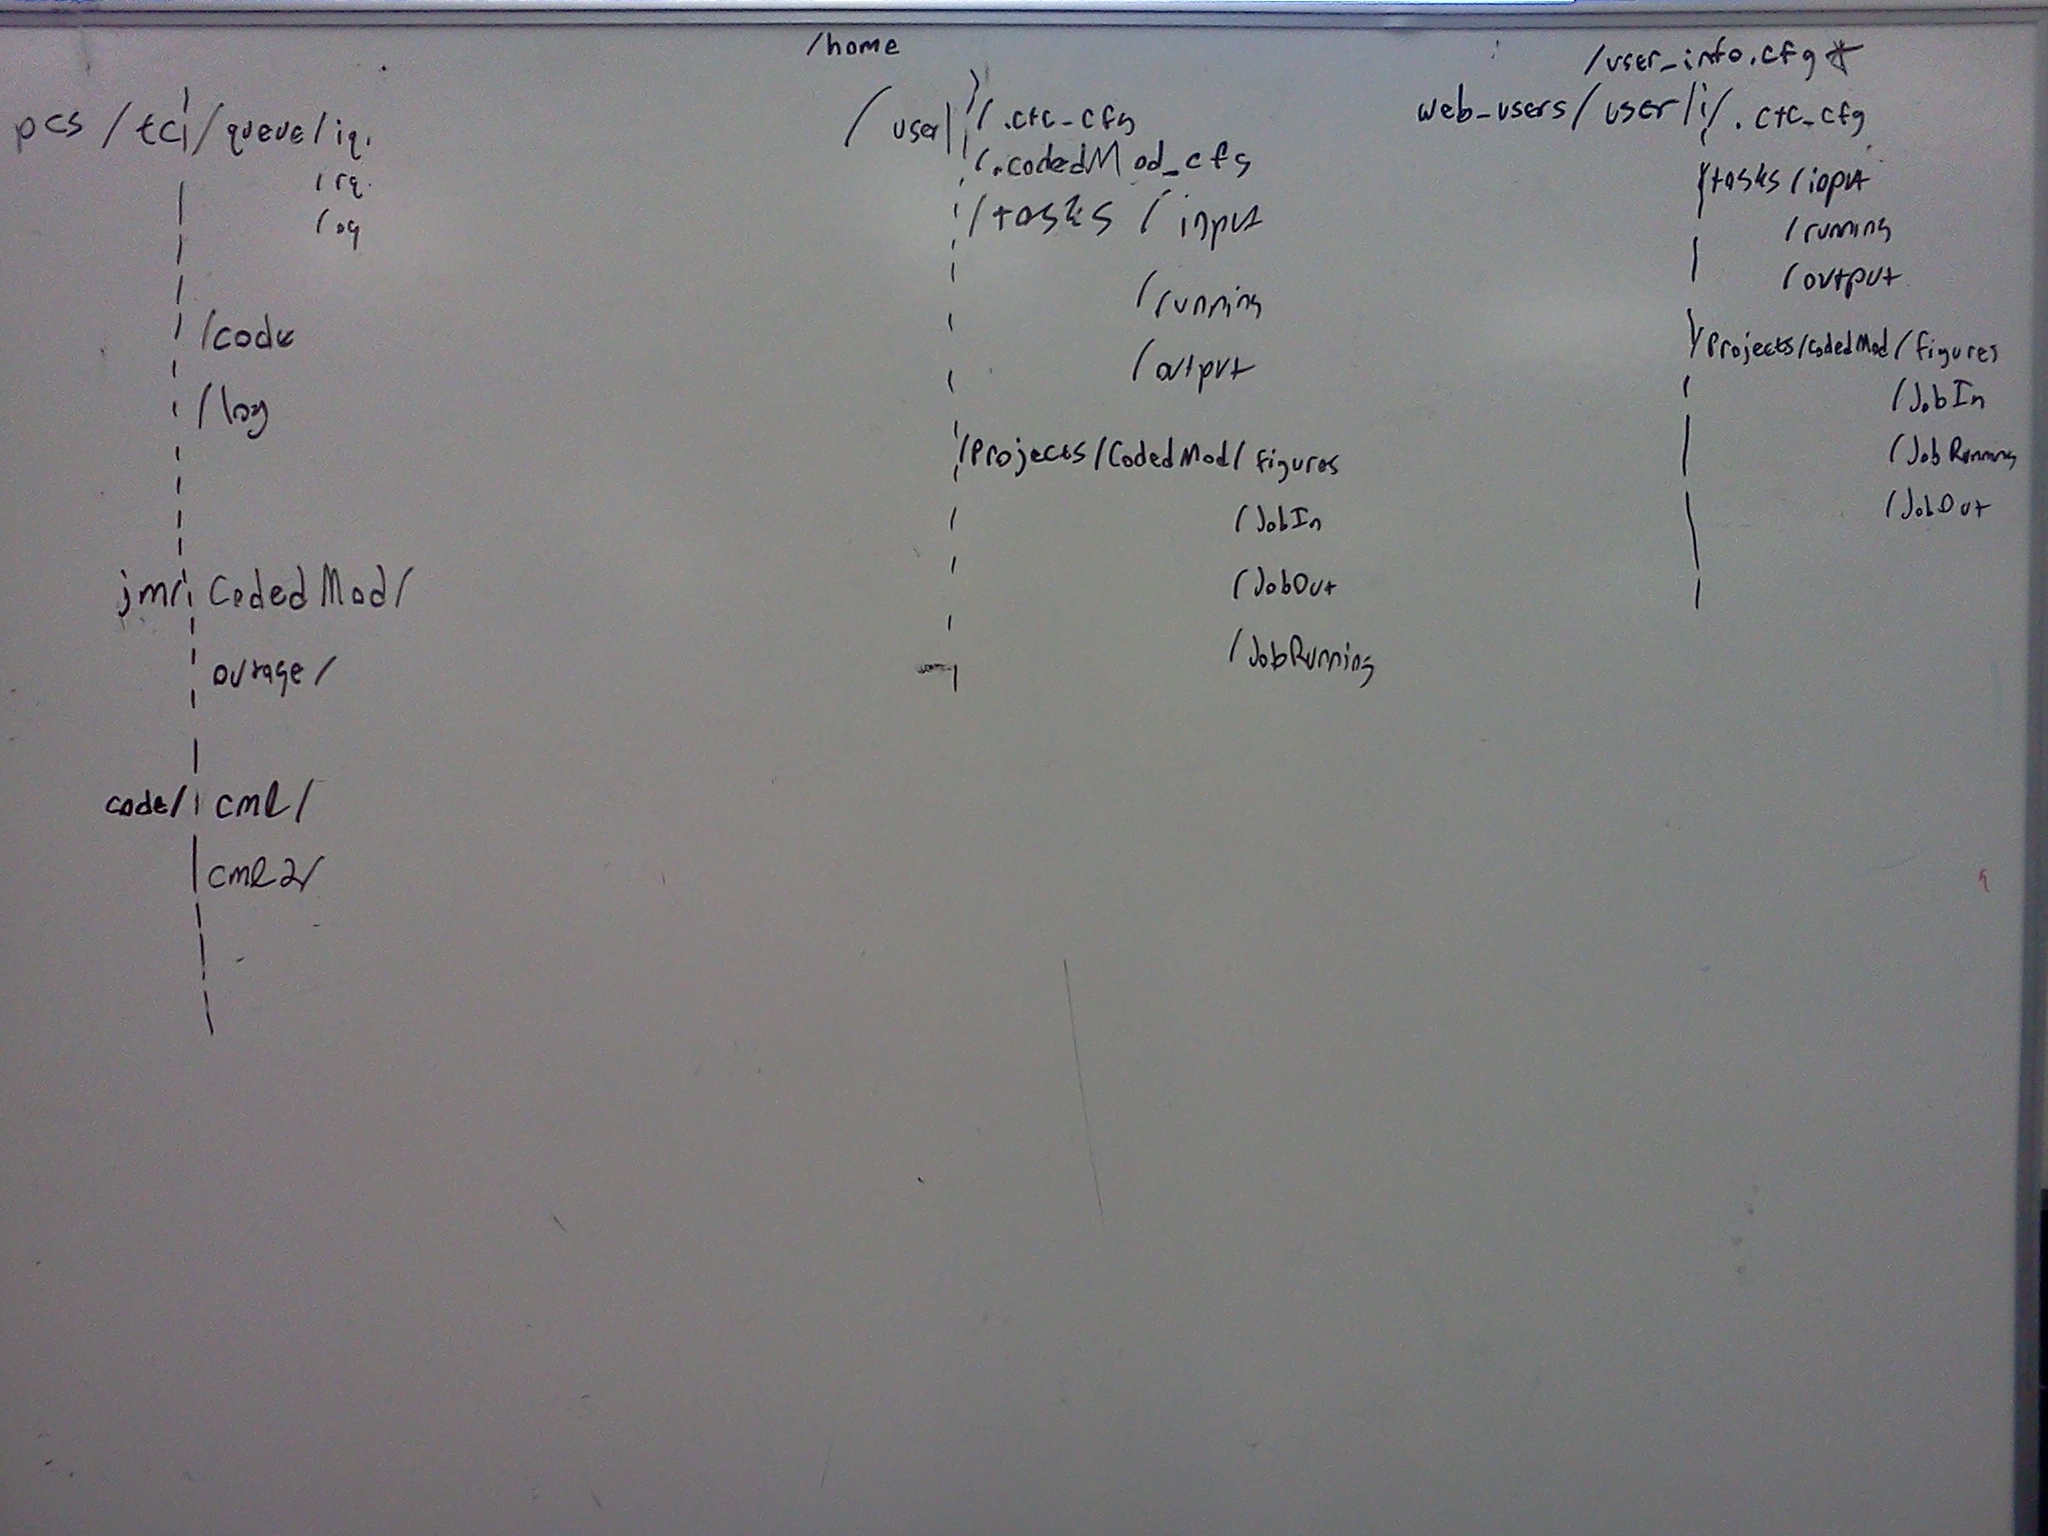 pcs /tc/queue/iq.
/rq.
/oq
/code
/log
jm/ CodedMod/
outage/
code/ cml/
cml2/
/home
/user/ /.ctc_cfg
/.codedMod_cfg
/tasks /input
/running
/output
/Projects/CodedMod/figures
/JobIn
/JobOut
/JobRunning
/user_info.cfg *
web_users/user/ /.ctc_cfg
/tasks /input
/running
/output
/Projects/CodedMod/figures
/JobIn
/JobRunning
/JobOut